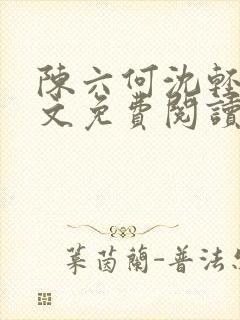 陳六何沈輕
文免費閱讀
葉茵蘭-普法